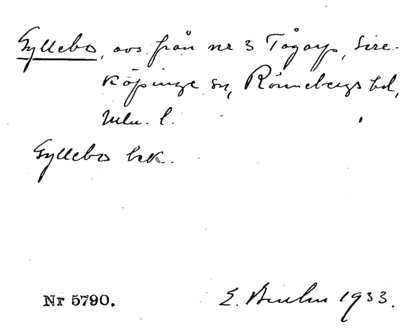 Gyllebo, avs från nr 3 Tågarp, Sire-
köpinge sn, Rönnebergs hd,
Mlm. l.
Gyllebo bek.
Nr 5790. E. 1933.